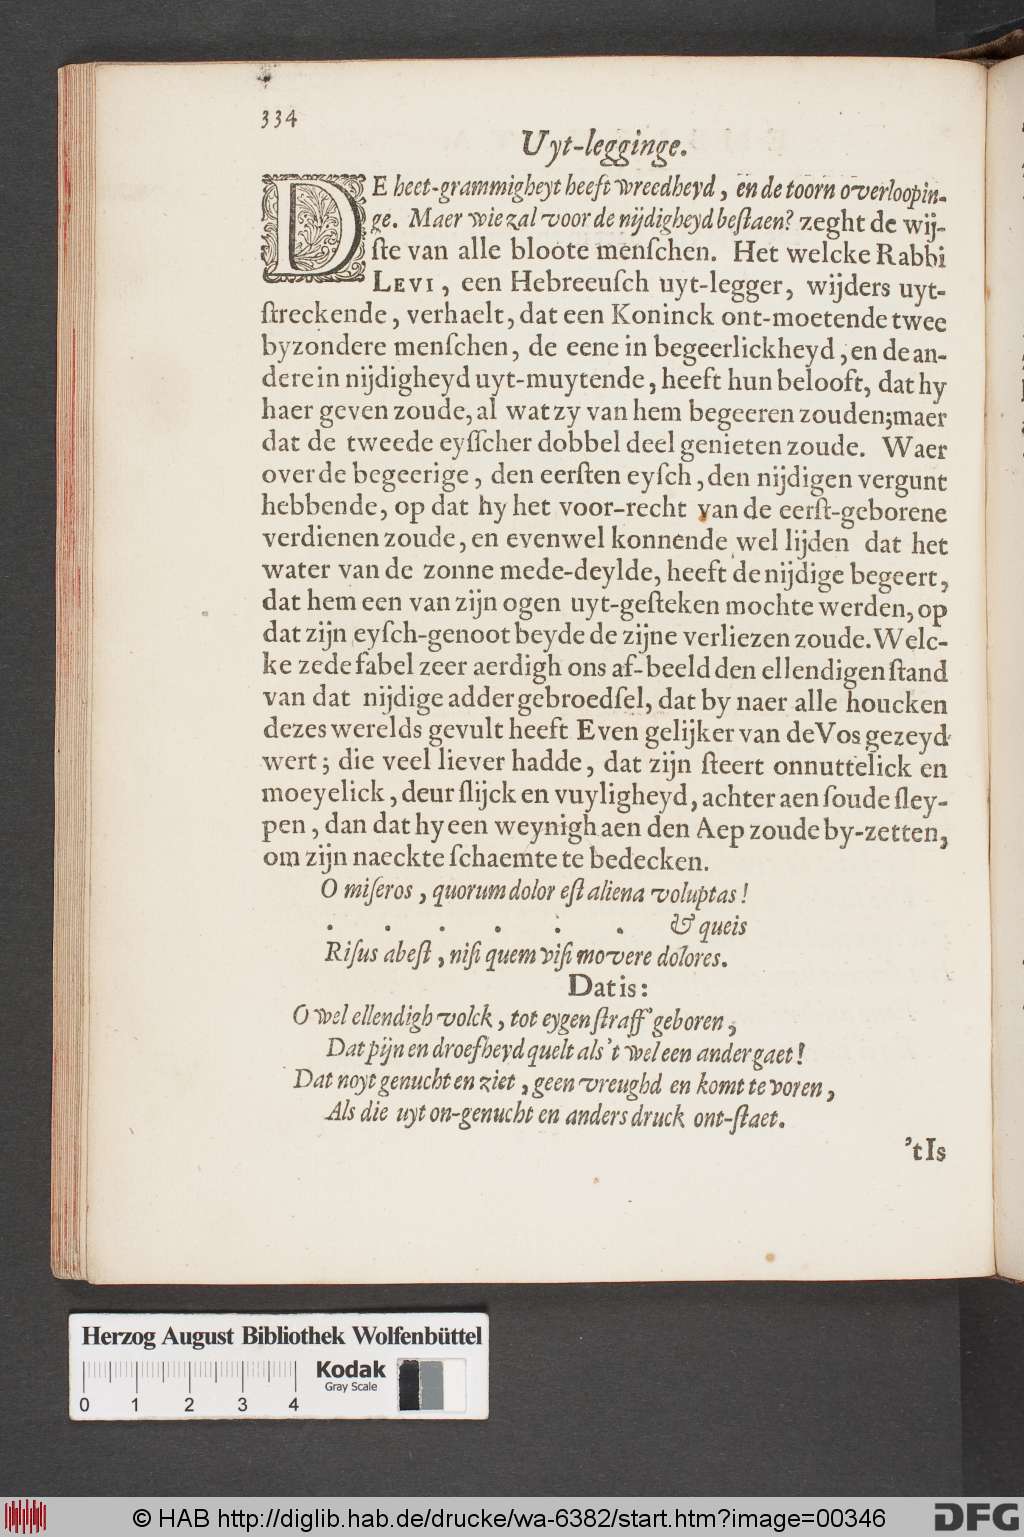 334
Uyt-legginge.
DE heet-grammigheyt heeft wreedheyd, en de toorn overloopin-
ge. Maer wie zal voor de nijdigheyd beſtaen? zeght de wij-
ſte van alle bloote menſchen. Het welcke Rabbi
LEVI, een Hebreeuſch uyt-legger, wijders uyt-
ſtreckende, verhaelt, dat een Koninck ont-moetende twee
byzondere menſchen, de eene in begeerlickheyd, en de an-
dere in nijdigheyd uyt-muytende, heeft hun belooft, dat hy
haer geven zoude, al wat zy van hem begeeren zouden; maer
dat de tweede eyſſcher dobbel deel genieten zoude. Waer
over de begeerige, den eerſten eyſch, den nijdigen vergunt
hebbende, op dat hy het voor-recht van de eerſt-geborene
verdienen zoude, en evenwel konnende wel lijden dat het
water van de zonne mede-deylde, heeft de nijdige begeert,
dat hem een van zijn ogen uyt-geſteken mochte werden, op
dat zijn eyſch-genoot beyde de zijne verliezen zoude. Welc-
ke zede fabel zeer aerdigh ons af-beeld den ellendigen ſtand
van dat nijdige adder gebroedſel, dat by naer alle houcken
dezes werelds gevult heeft Even gelijker van de Vos gezeyd
wert; die veel liever hadde, dat zijn ſteert onnuttelick en
moeyelick, deur ſlijck en vuyligheyd, achter aen ſoude ſley-
pen, dan dat hy een weynigh aen den Aep zoude by-zetten,
om zijn naeckte ſchaemte te bedecken.
O miſeros, quorum dolor eſt aliena voluptas!
. . . . . . & queis
Riſus abeſt, niſi quem viſi movere dolores.
Dat is:
O wel ellendigh volck, tot eygen ſtraff geboren,
Dat pijn en droefheyd quelt als't wel een ander gaet!
Dat noyt genucht en ziet, geen vreughd en komt te voren,
Als die uyt on-genucht en anders druck ont-ſtaet.
'tIs
Herzog August Bibliothek Wolfenbüttel
Kodak
Gray Scale
0 1 2 3 4
© HAB http://diglib.hab.de/drucke/wa-6382/start.htm?image=00346
DFG